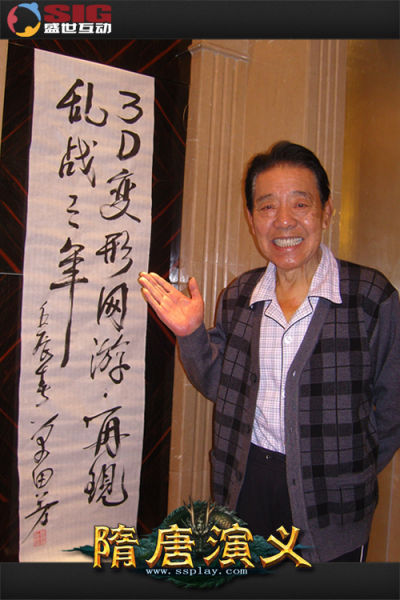 SIG
盛世互动
3D变形网游·再现
乱战三年
壬辰春 单田芳
隋唐演义
www.ssplay.com